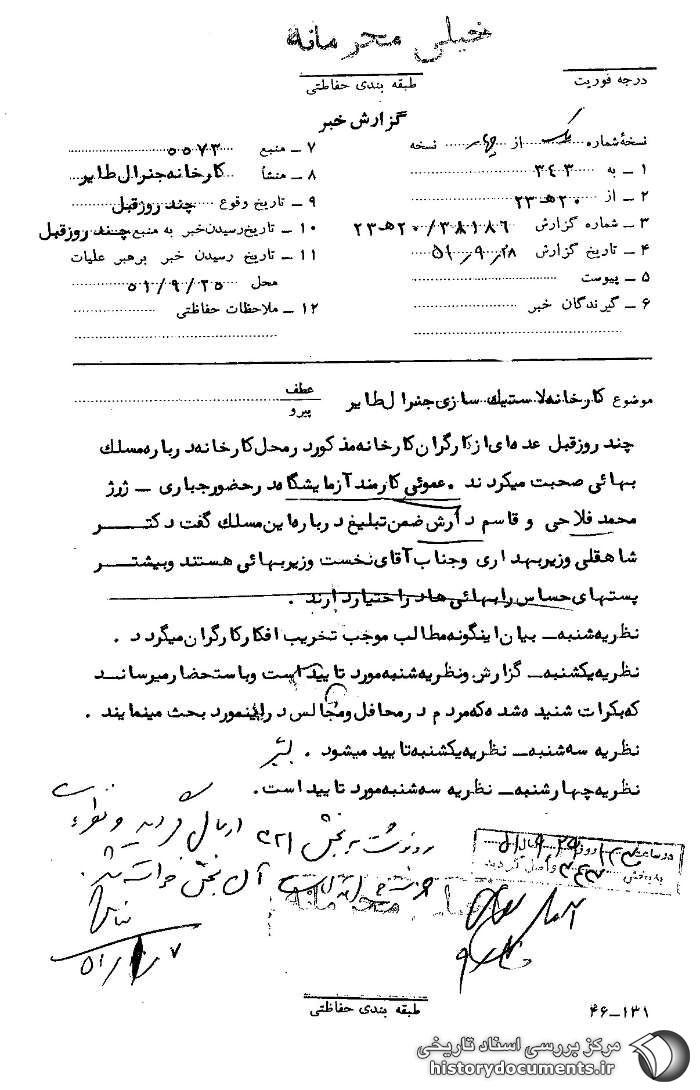 خیلی محرمانه
درجه فوریت
طبقه بندی حفاظتی
گزارش خبر
نسخهٔ شماره یک از چهار نسخه
۱ ــ به ۳۴۳
۲ ــ از ۲۰هـ۲۳
۳ ــ شماره گزارش ۳۸۱۸۶/۲۰هـ۲۳
۴ ــ تاریخ گزارش ۵۱/۹/۲۸
۵ ــ پیوست
۶ ــ گیرندگان خبر
۷ ــ منبع ۵۵۷۳
۸ ــ منشأ کارخانه جنرال طایر
۹ ــ تاریخ وقوع چند روز قبل
۱۰ ــ تاریخ رسیدن خبر به منبع چند روز قبل
۱۱ ــ تاریخ رسیدن خبر برهبر عملیات
محل ۵۱/۹/۲۵
۱۲ ــ ملاحظات حفاظتی
موضوع کارخانه لاستیک سازی جنرال طایر
عطف
پیرو
چند روز قبل عده ای از کارگران کارخانه مذکور در محل کارخانه درباره مسلک
بهائی صحبت میکردند . عموئی کارمند آزمایشگاه در حضور جباری ــ ژرژ
محمد فلاحی و قاسم دآرش ضمن تبلیغ درباره این مسلک گفت دکتر
شاهقلی وزیر بهداری و جناب آقای نخست وزیر بهائی هستند و بیشتر
پستهای حساس را بهائی ها در اختیار دارند .
نظریه شنبه ــ بیان اینگونه مطالب موجب تخریب افکار کارگران میگردد .
نظریه یکشنبه ــ گزارش و نظریه شنبه مورد تایید است و باستحضار میرساند
که بکرات شنیده شده که مردم در محافل و مجالس در اینمورد بحث مینمایند .
نظریه سه شنبه ــ نظریه یکشنبه تایید میشود .
نظریه چهارشنبه ــ نظریه سه شنبه مورد تایید است .
رونوشت بر بخش ۳۲۱ ارسال گردید و نظریه
آن بخش خواسته شد .
به بخش ۳۴۳ واصل گردید
خیلی محرمانه
طبقه بندی حفاظتی
۴۶ــ۱۳۱
مرکز بررسی اسناد تاریخی
historydocuments.ir